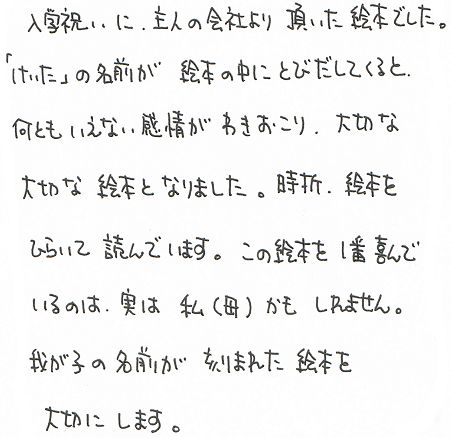 入学祝いに、主人の会社より頂いた絵本でした。
「けいた」の名前が絵本の中にとびだしてくると、
何ともいえない感情がわきおこり、大切な
大切な絵本となりました。時折、絵本を
ひらいて読んでいます。この絵本を1番喜んで
いるのは、実は私(母)かもしれません。
我が子の名前が刻まれた絵本を
大切にします。